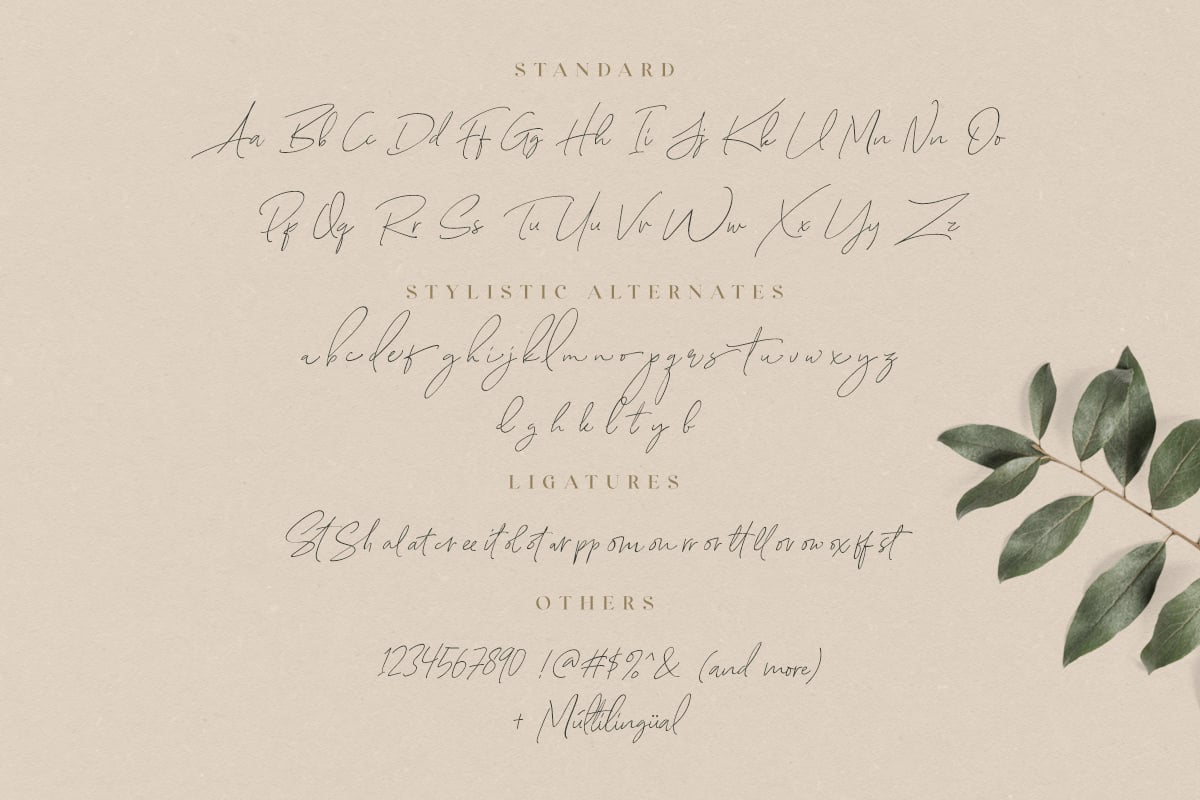 STANDARD
Aa Bb Cc Dd Ff Gg Hh Ii Jj Kk Ll Mm Nn Oo
Pp Qq Rr Ss Tt Uu Vv Ww Xx Yy Zz
STYLISTIC ALTERNATES
a b c d e f g h i j k l m n o p q r s t u v w x y z
d g h k l t y b
LIGATURES
St Sh al at cr ee it ol ot ar pp om on rr or tt ll ov ow ox ff st
OTHERS
1234567890 !@#$%^& (and more)
+ Múltilingüal